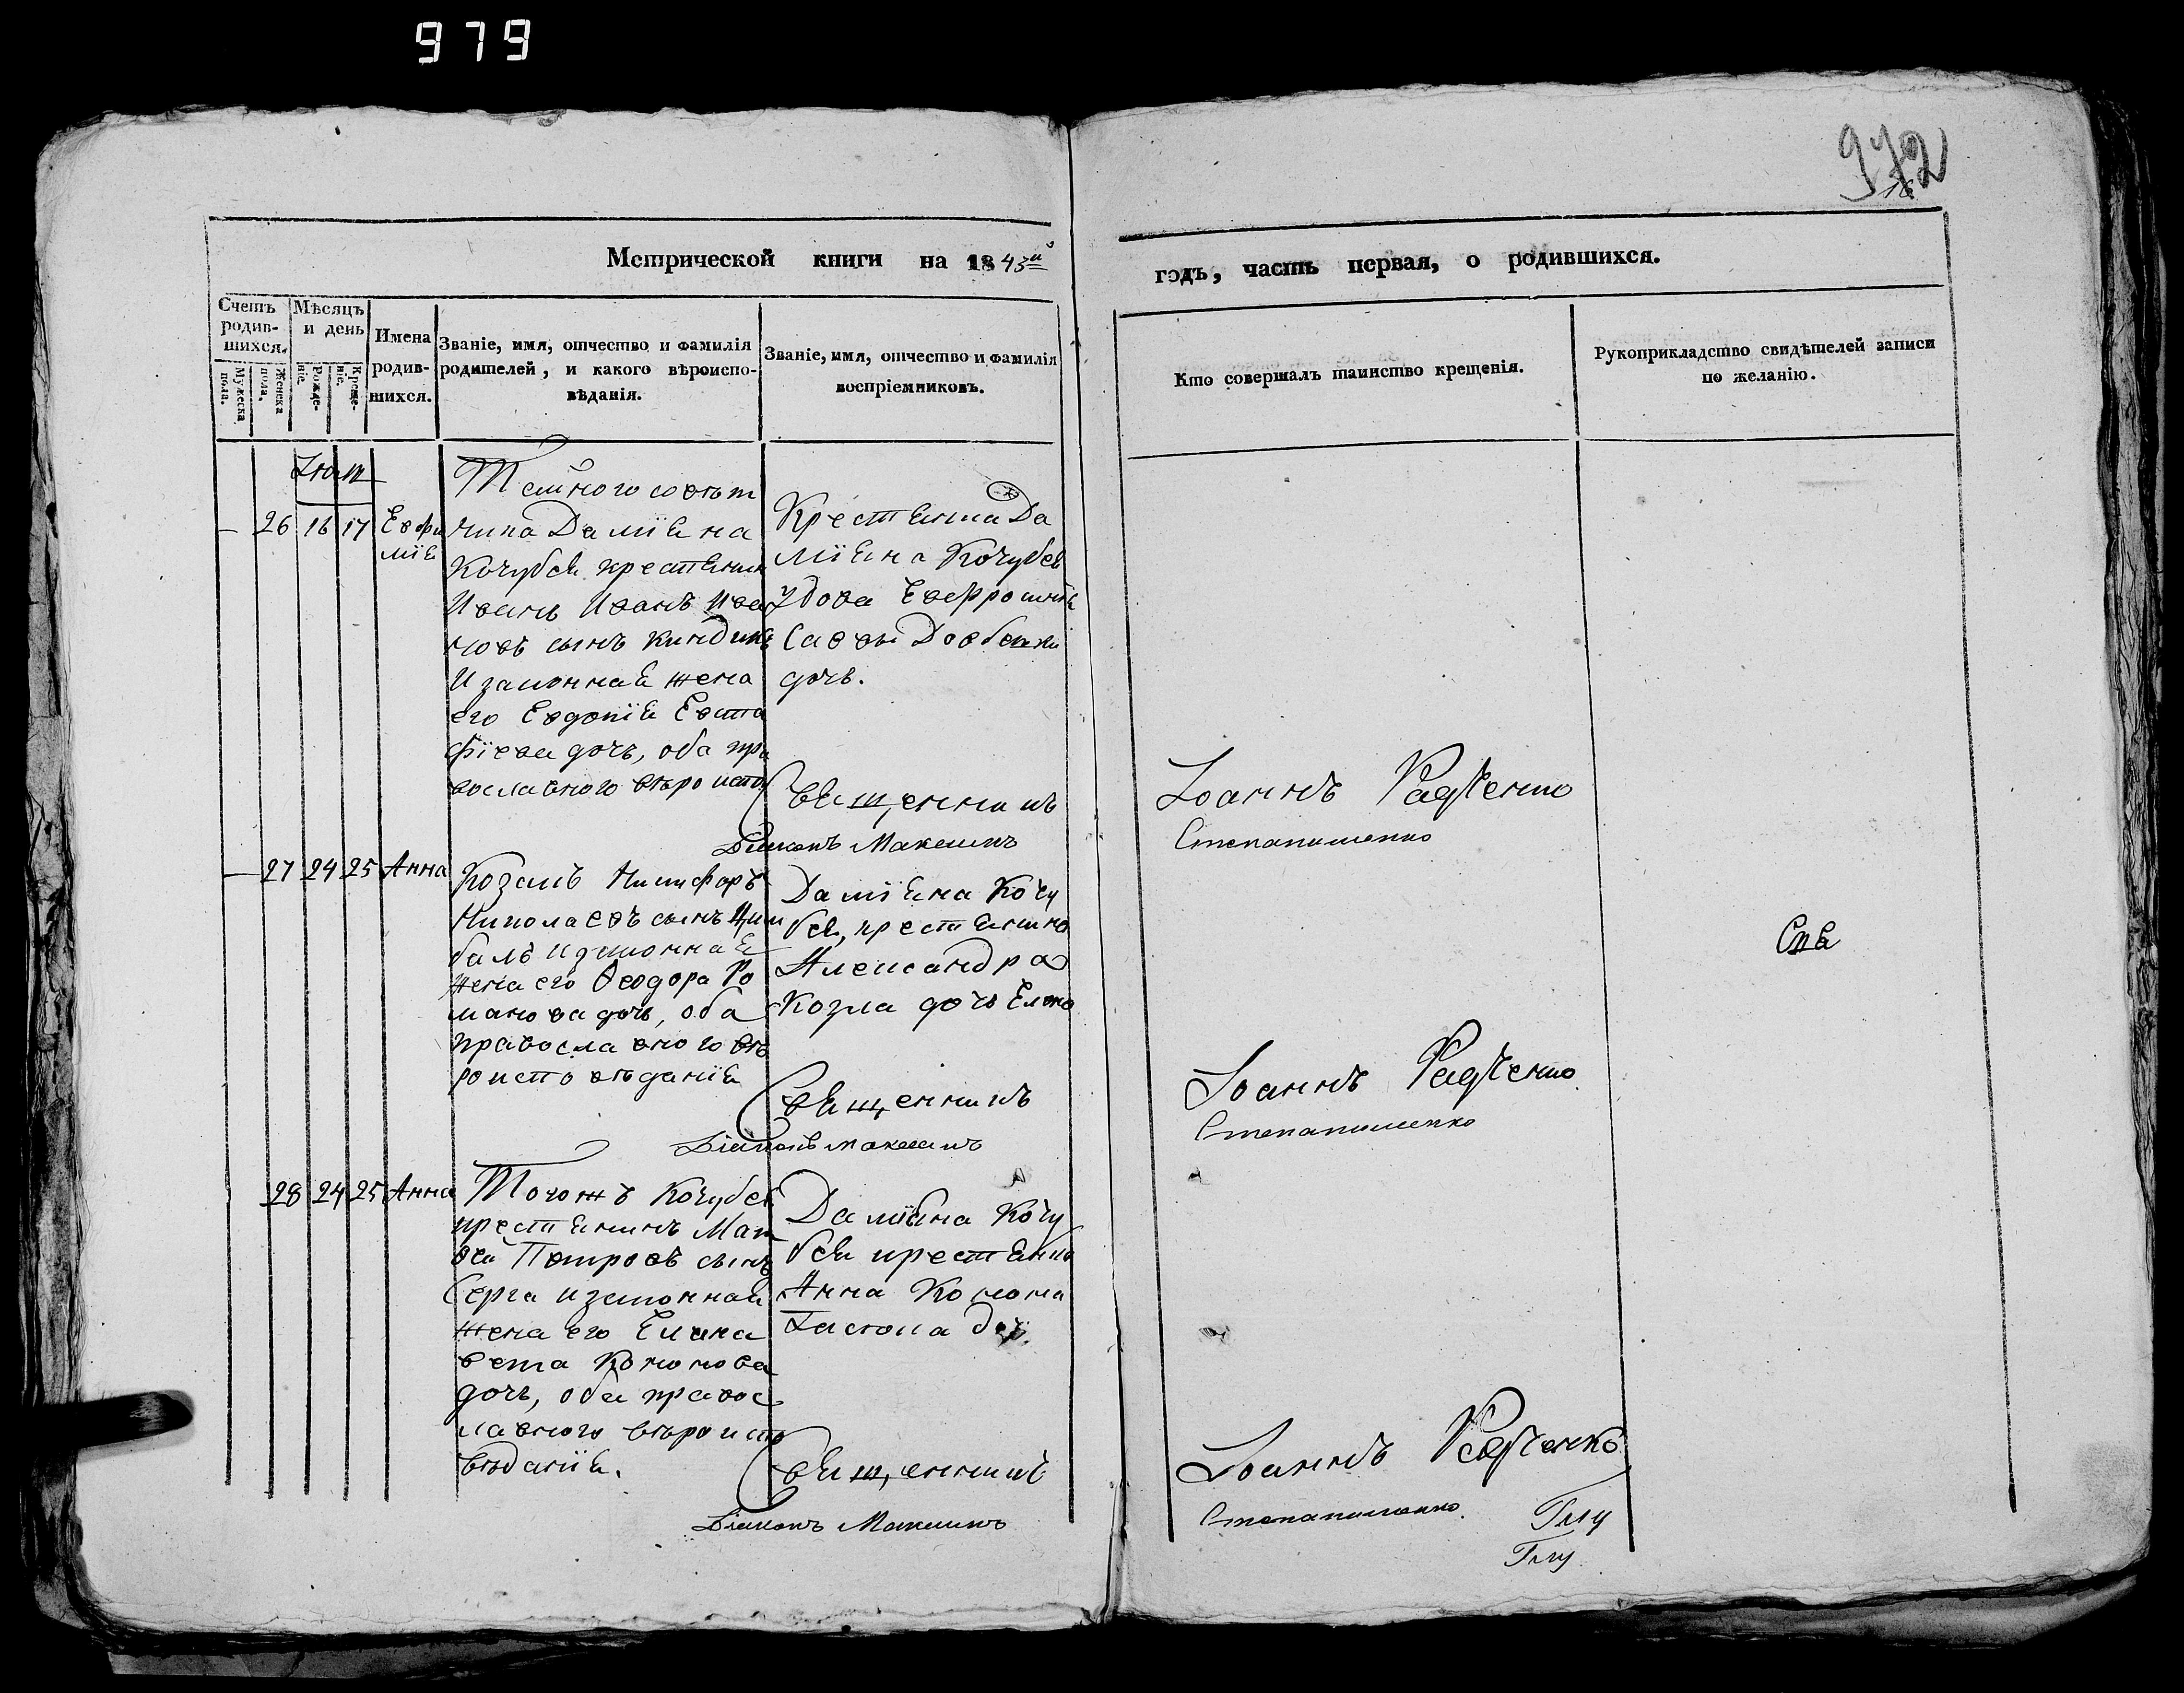 979
972
16
Метрической книги на 1843й
годъ, часть первая, о родившихся.
Счетъ родив-шихся.
Мужеска пола.
Женска пола.
Мѣсяцъ и день
Рожде-ніе.
Креще-ніе.
Имена родив-шихся.
Званіе, имя, отчество и фамилія
родителей, и какого вѣроиспо-
вѣданія.
Званіе, имя, отчество и фамилія
воспріемниковъ.
Кто совершалъ таинство крещенія.
Рукоприкладство свидѣтелей записи
по желанію.
26 16 17 Евфи
мія
Тайного совѣт
ника Даміяна
Кочубея крестянин
Иванъ Ива
новъ сынъ
И законная жена
его Евдокія Евста
фіева дочь, оба пра
вославного вѣроиспо
Крестянина Да
міяна Кочубея
Удова Евфросинія
Саввы
дочь.
Священникъ
Іоаннъ Радченко
Діаконъ Максимъ
Степаненко
27 24 25 Анна
Козакъ Никифоръ
Николаевъ сынъ Цим
балъ и законная
жена его Ѳеодора Ро
манова дочь, оба
православного вѣ
роисповѣданія
Даміяна Кочу
бея, крестянина
Александра
Козла дочь
Священникъ
Іоаннъ Радченко
Діаконъ Максимъ
Степаненко
28 24 25 Анна
Тогожъ Кочубея
крестянинъ Мат
вей Петровъ сынъ
Серга и законная
жена его Елиса
вета Кононова
дочь, оба правос
лавного вѣроиспо
вѣданія.
Даміяна Кочу
бея крестянина
Анна Конона
Священникъ
Іоаннъ Радченко
Діаконъ Максимъ
Степаненко